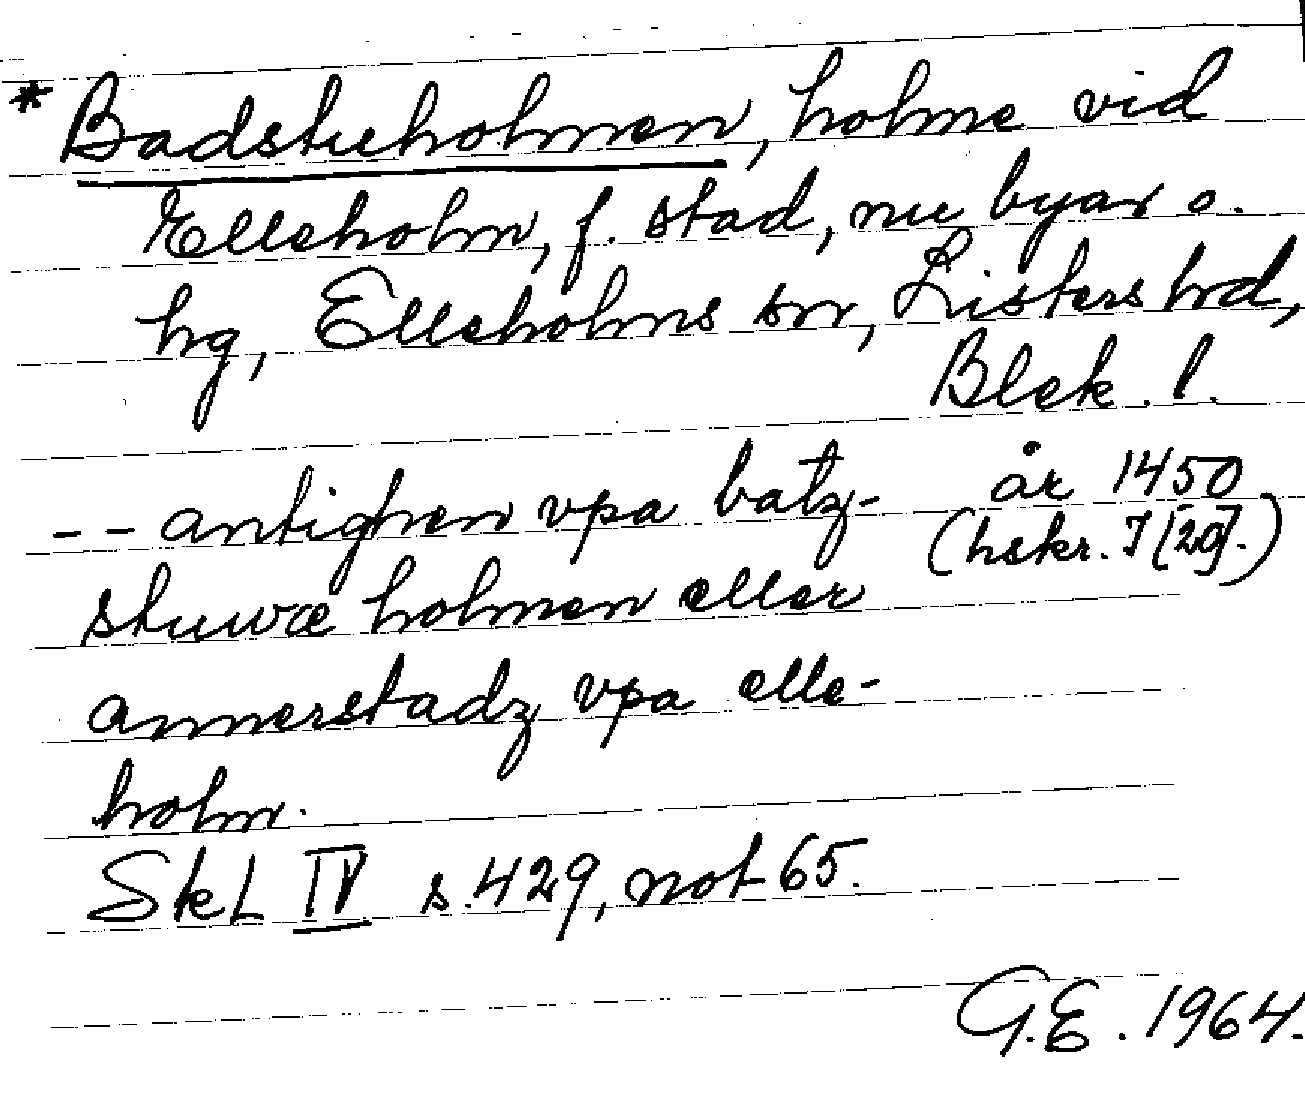 * Badstueholmen, holme vid
Elleholm, f. stad, nu byar o.
hg, Elleholms sn, Listers hd,
Blek. l.
-- antighen vpa batz- år 1450
stuwæ holmen eller (hskr. I [20].)
annerstadz vpa elle-
holm.
SkL IV s. 429, not 65.
G.E. 1964.